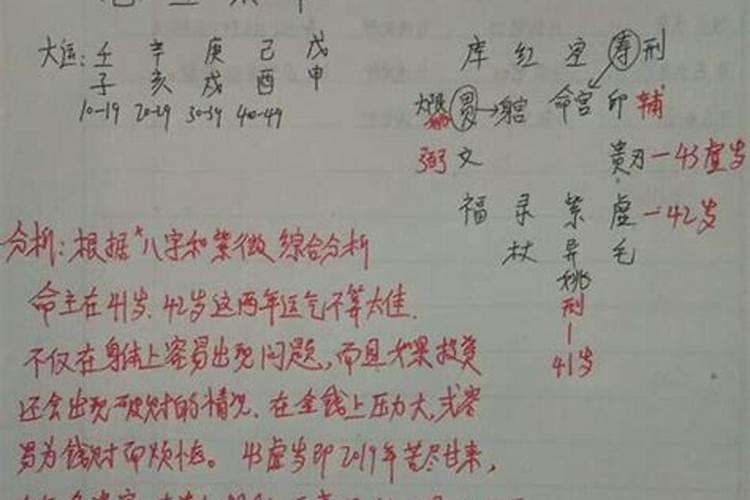 大运: 壬 辛 庚 己 戊
子 亥 戌 酉 申
10-19 20-29 30-39 40-49
库 红 空 寿 刑
大限 贯→ 命宫 印 辅
弼 文 贵刃—43虚岁
福 录 紫 虚—42岁
杖 异 毛
姚
刑
41岁
分析: 根据"八字和紫微综合分析
命主在41岁、42岁这两年运气不算太佳.
不仅在身体上容易出现问题,而且如果投资
还会出现破财的情况、在金钱上压力大,或容
易为钱财而烦恼。 43虚岁即2019年苦尽甘来,